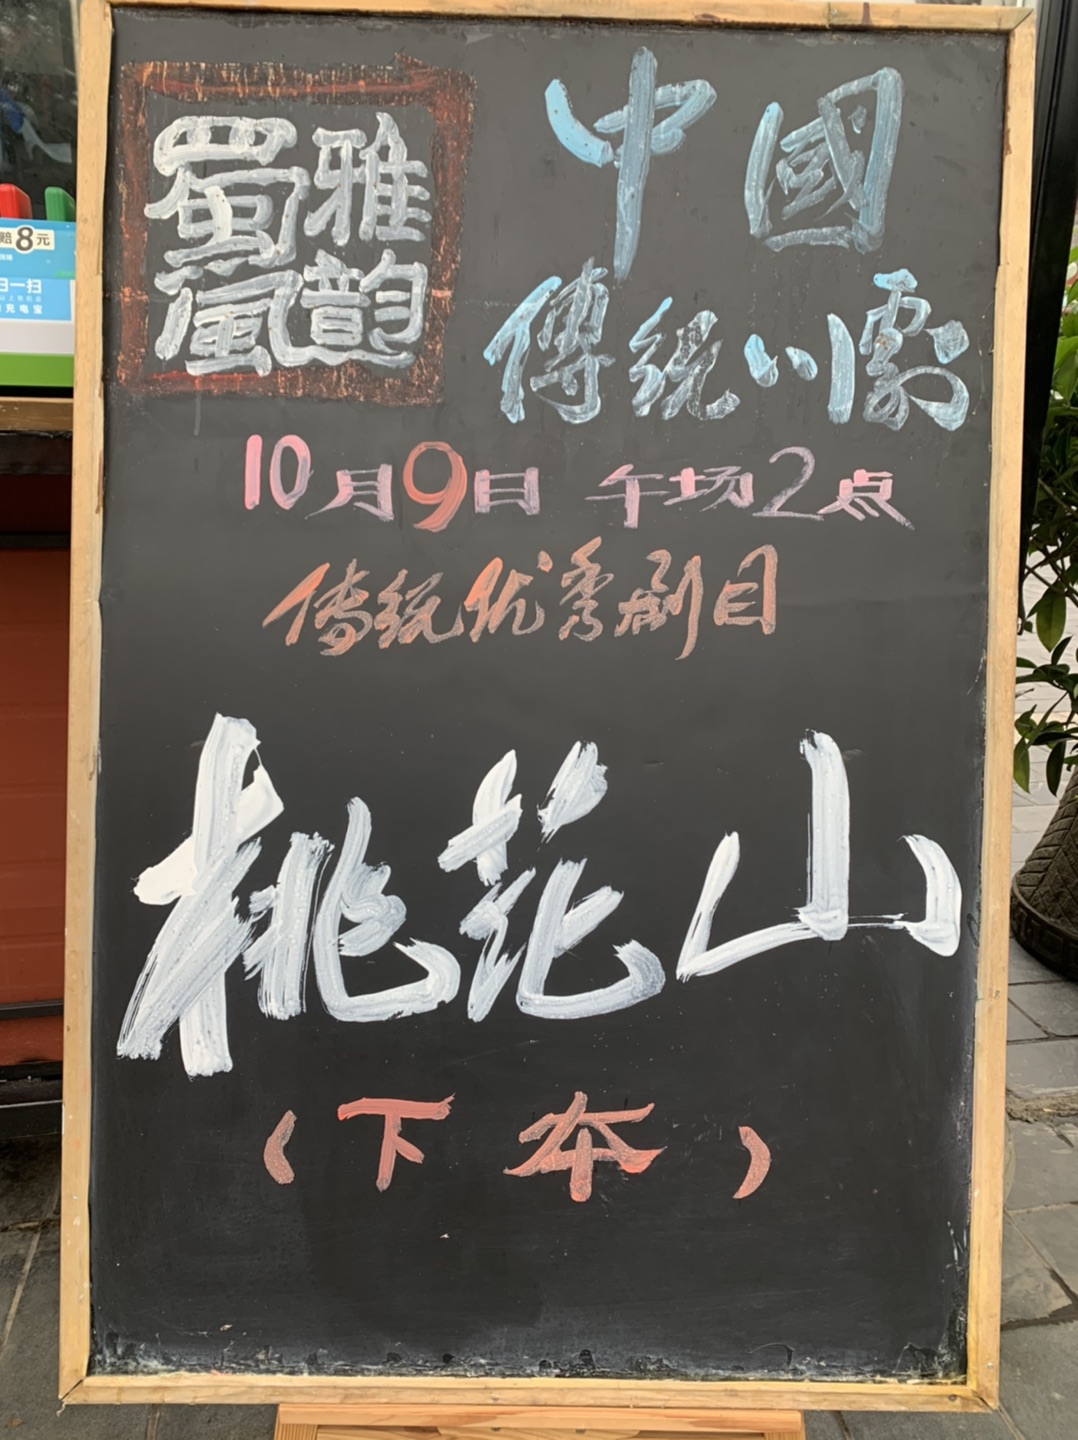 蜀風雅韵
中國
傳統川劇
10月9日 午场2点
传统优秀剧目
桃花山
（下本）
赔8元
扫一扫
充电宝